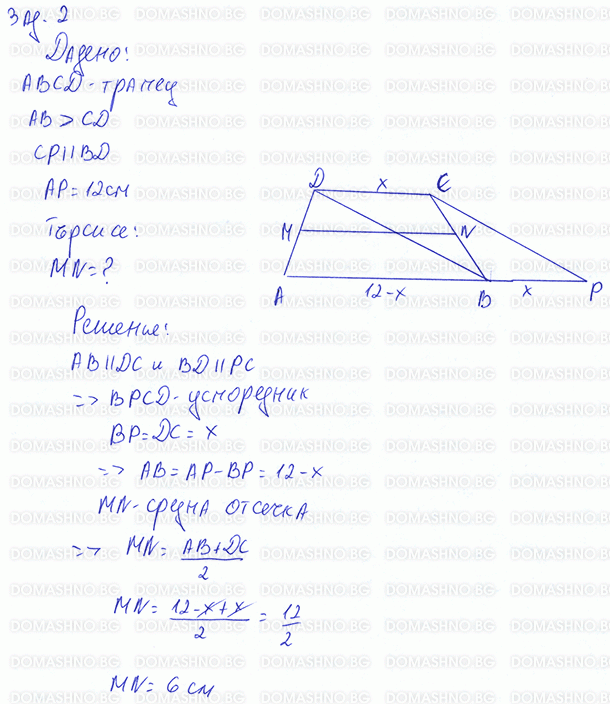 Зад. 2
Дадено:
ABCD - трапец
AB > CD
CP || BD
AP = 12 см
Търси се:
MN = ?
D x C
M N
A 12-x B x P
Решение:
AB || DC и BD || PC
=> BPCD - успоредник
BP = DC = x
=> AB = AP - BP = 12 - x
MN - средна отсечка
=> MN = AB + DC / 2
MN = 12 - x + x / 2 = 12 / 2
MN = 6 см
DOMASHNO.BG